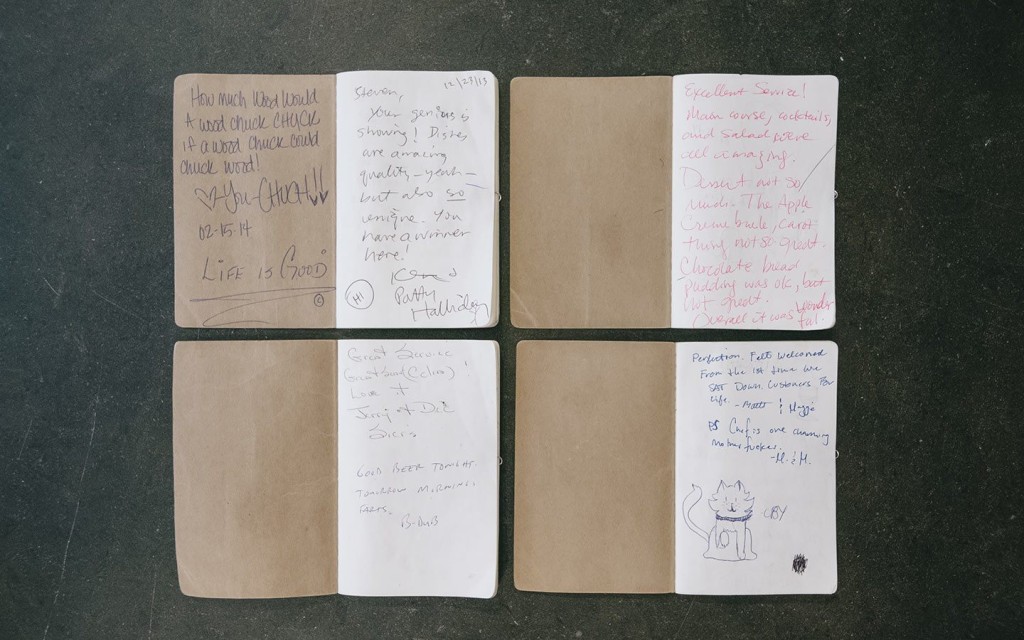 How much Wood Would
A wood chuck CHUCK
if a wood chuck could
chuck wood!
♡-You-CHUCH!!
02-15-14
LIFE IS GOOD
©
12/23/13
Steven,
Your genius is
showing! Dishes
are amazing
quality - yeah -
but also so
unique. You
have a winner
here!
HI
Patty
Halliday
Excellent Service!
Main course, cocktails,
and salad were
all amazing.
Desert not so
much. The Apple
Creme brule, carrot
thing not so great.
Chocolate bread
pudding was ok, but
not great.
Overall it was wonder
ful.
Great Service
Great food
Love it
Jerry & Dee
GOOD BEER TONIGHT.
TOMORROW MORNING,
FARTS.
B-DUB
Perfection. Felt welcomed
From the 1st time we
SAT Down. Customers For
Life.
-Matt & Maggie
PS Chef is one charming
motherfucker.
-M. & M.
UBY